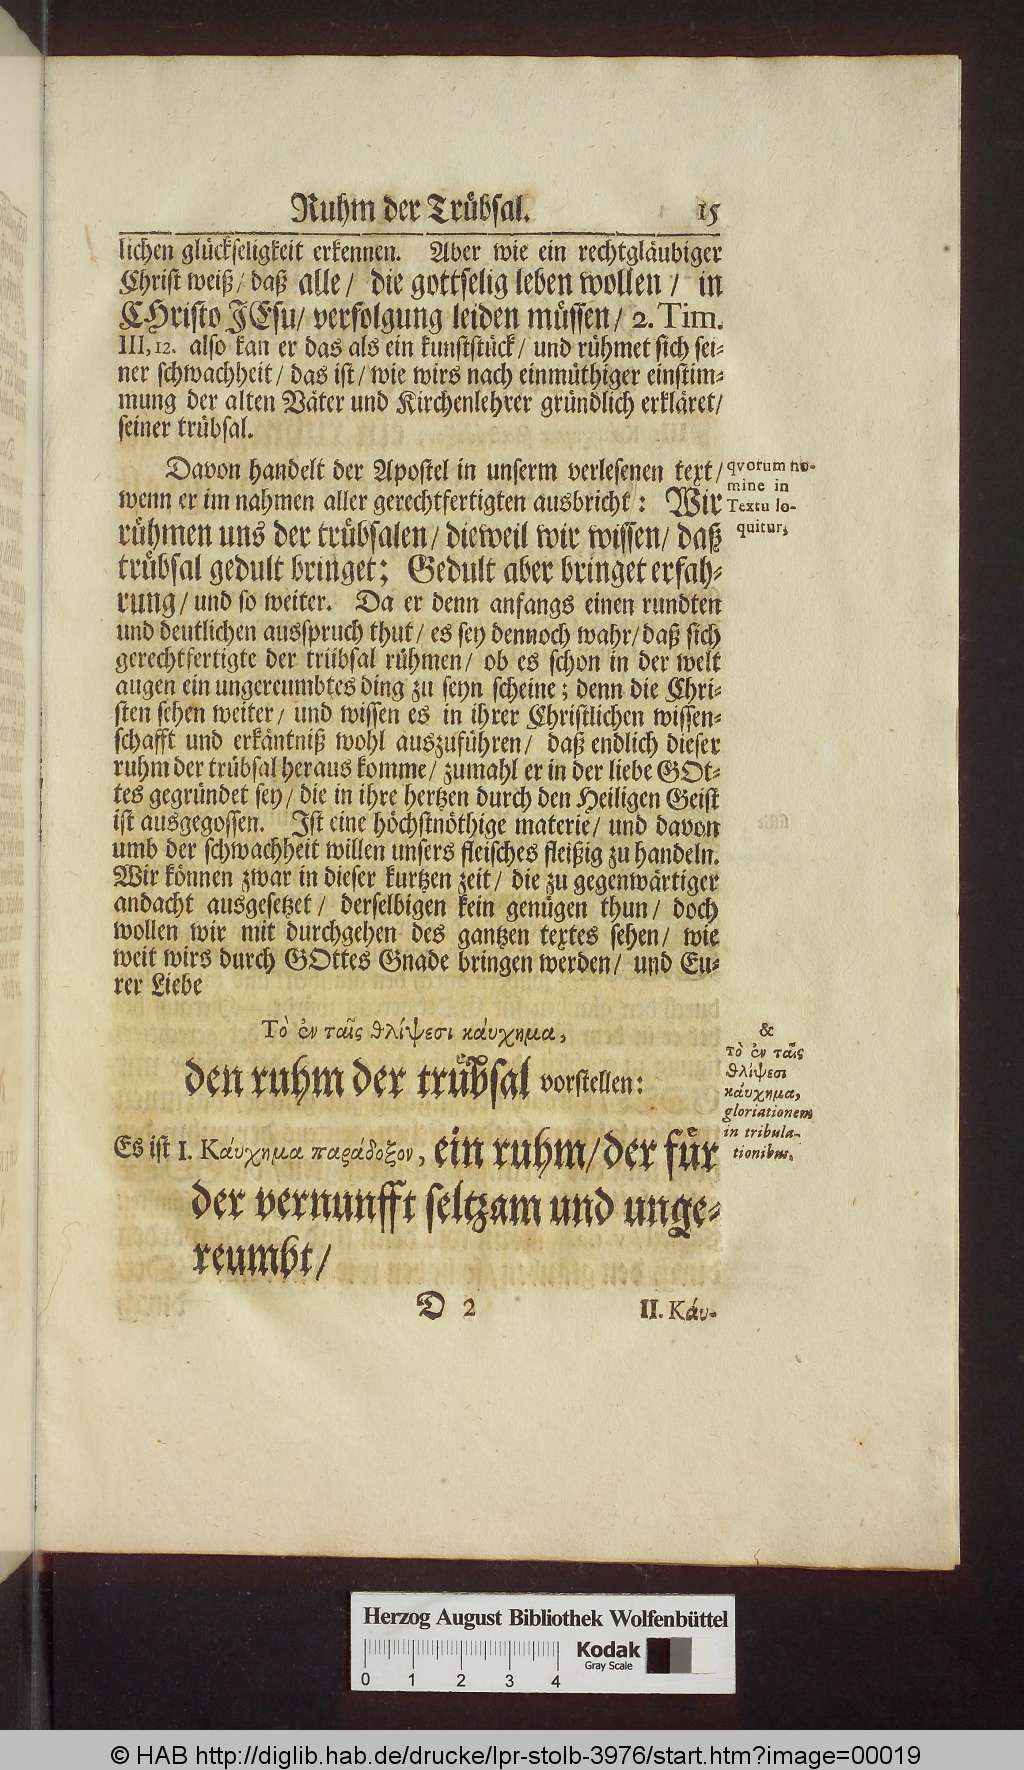 Ruhm der Trübsal. 15
lichen glückseligkeit erkennen. Aber wie ein rechtgläubiger
Christ weiß/ daß alle/ die gottselig leben wollen/ in
CHristo JEsu/ verfolgung leiden müssen/ 2. Tim.
III, 12. also kan er das als ein kunststück/ und rühmet sich sei-
ner schwachheit/ das ist/ wie wirs nach einmüthiger einstim-
mung der alten Väter und Kirchenlehrer gründlich erkläret/
seiner trübsal.
Davon handelt der Apostel in unserm verlesenen text/
wenn er im nahmen aller gerechtfertigten ausbricht/: Wir
rühmen uns der trübsalen/ dieweil wir wissen/ daß
trübsal gedult bringet; Gedult aber bringet erfah-
rung/ und so weiter. Da er denn anfangs einen rundten
und deutlichen ausspruch thut/ es sey dennoch wahr/ daß sich
gerechtfertigte der trübsal rühmen/ ob es schon in der welt
augen ein ungereumbtes ding zu seyn scheine; denn die Chri-
sten sehen weiter/ und wissen es in ihrer Christlichen wissen-
schafft und erkäntniß wohl auszuführen/ daß endlich dieser
ruhm der trübsal heraus komme/ zumahl er in der liebe GOt-
tes gegründet sey/ die in ihre hertzen durch den Heiligen Geist
ist ausgegossen. Ist eine höchstnöthige materie/ und davon
umb der schwachheit willen unsers fleisches fleißig zu handeln.
Wir können zwar in dieser kurtzen zeit/ die zu gegenwärtiger
andacht ausgesetzet/ derselbigen kein genügen thun/ doch
wollen wir mit durchgehen des gantzen textes sehen/ wie
weit wirs durch GOttes Gnade bringen werden/ und Eu-
rer Liebe
Τὸ ἐν ταῖς θλίψεσι κάυχημα,
den ruhm der trübsal vorstellen:
Es ist I. Κάυχημα παράδοξον, ein ruhm/ der für
der vernunfft seltzam und unge-
reumbt/
D 2 II. Κάυ-
qvorum no-
mine in
Textu lo-
quitur,
&
Τὸ ἐν ταῖς
θλίψεσι
κάυχημα,
gloriationem
in tribula-
tionibus.
Herzog August Bibliothek Wolfenbüttel
Kodak
Gray Scale
0 1 2 3 4
© HAB http://diglib.hab.de/drucke/lpr-stolb-3976/start.htm?image=00019